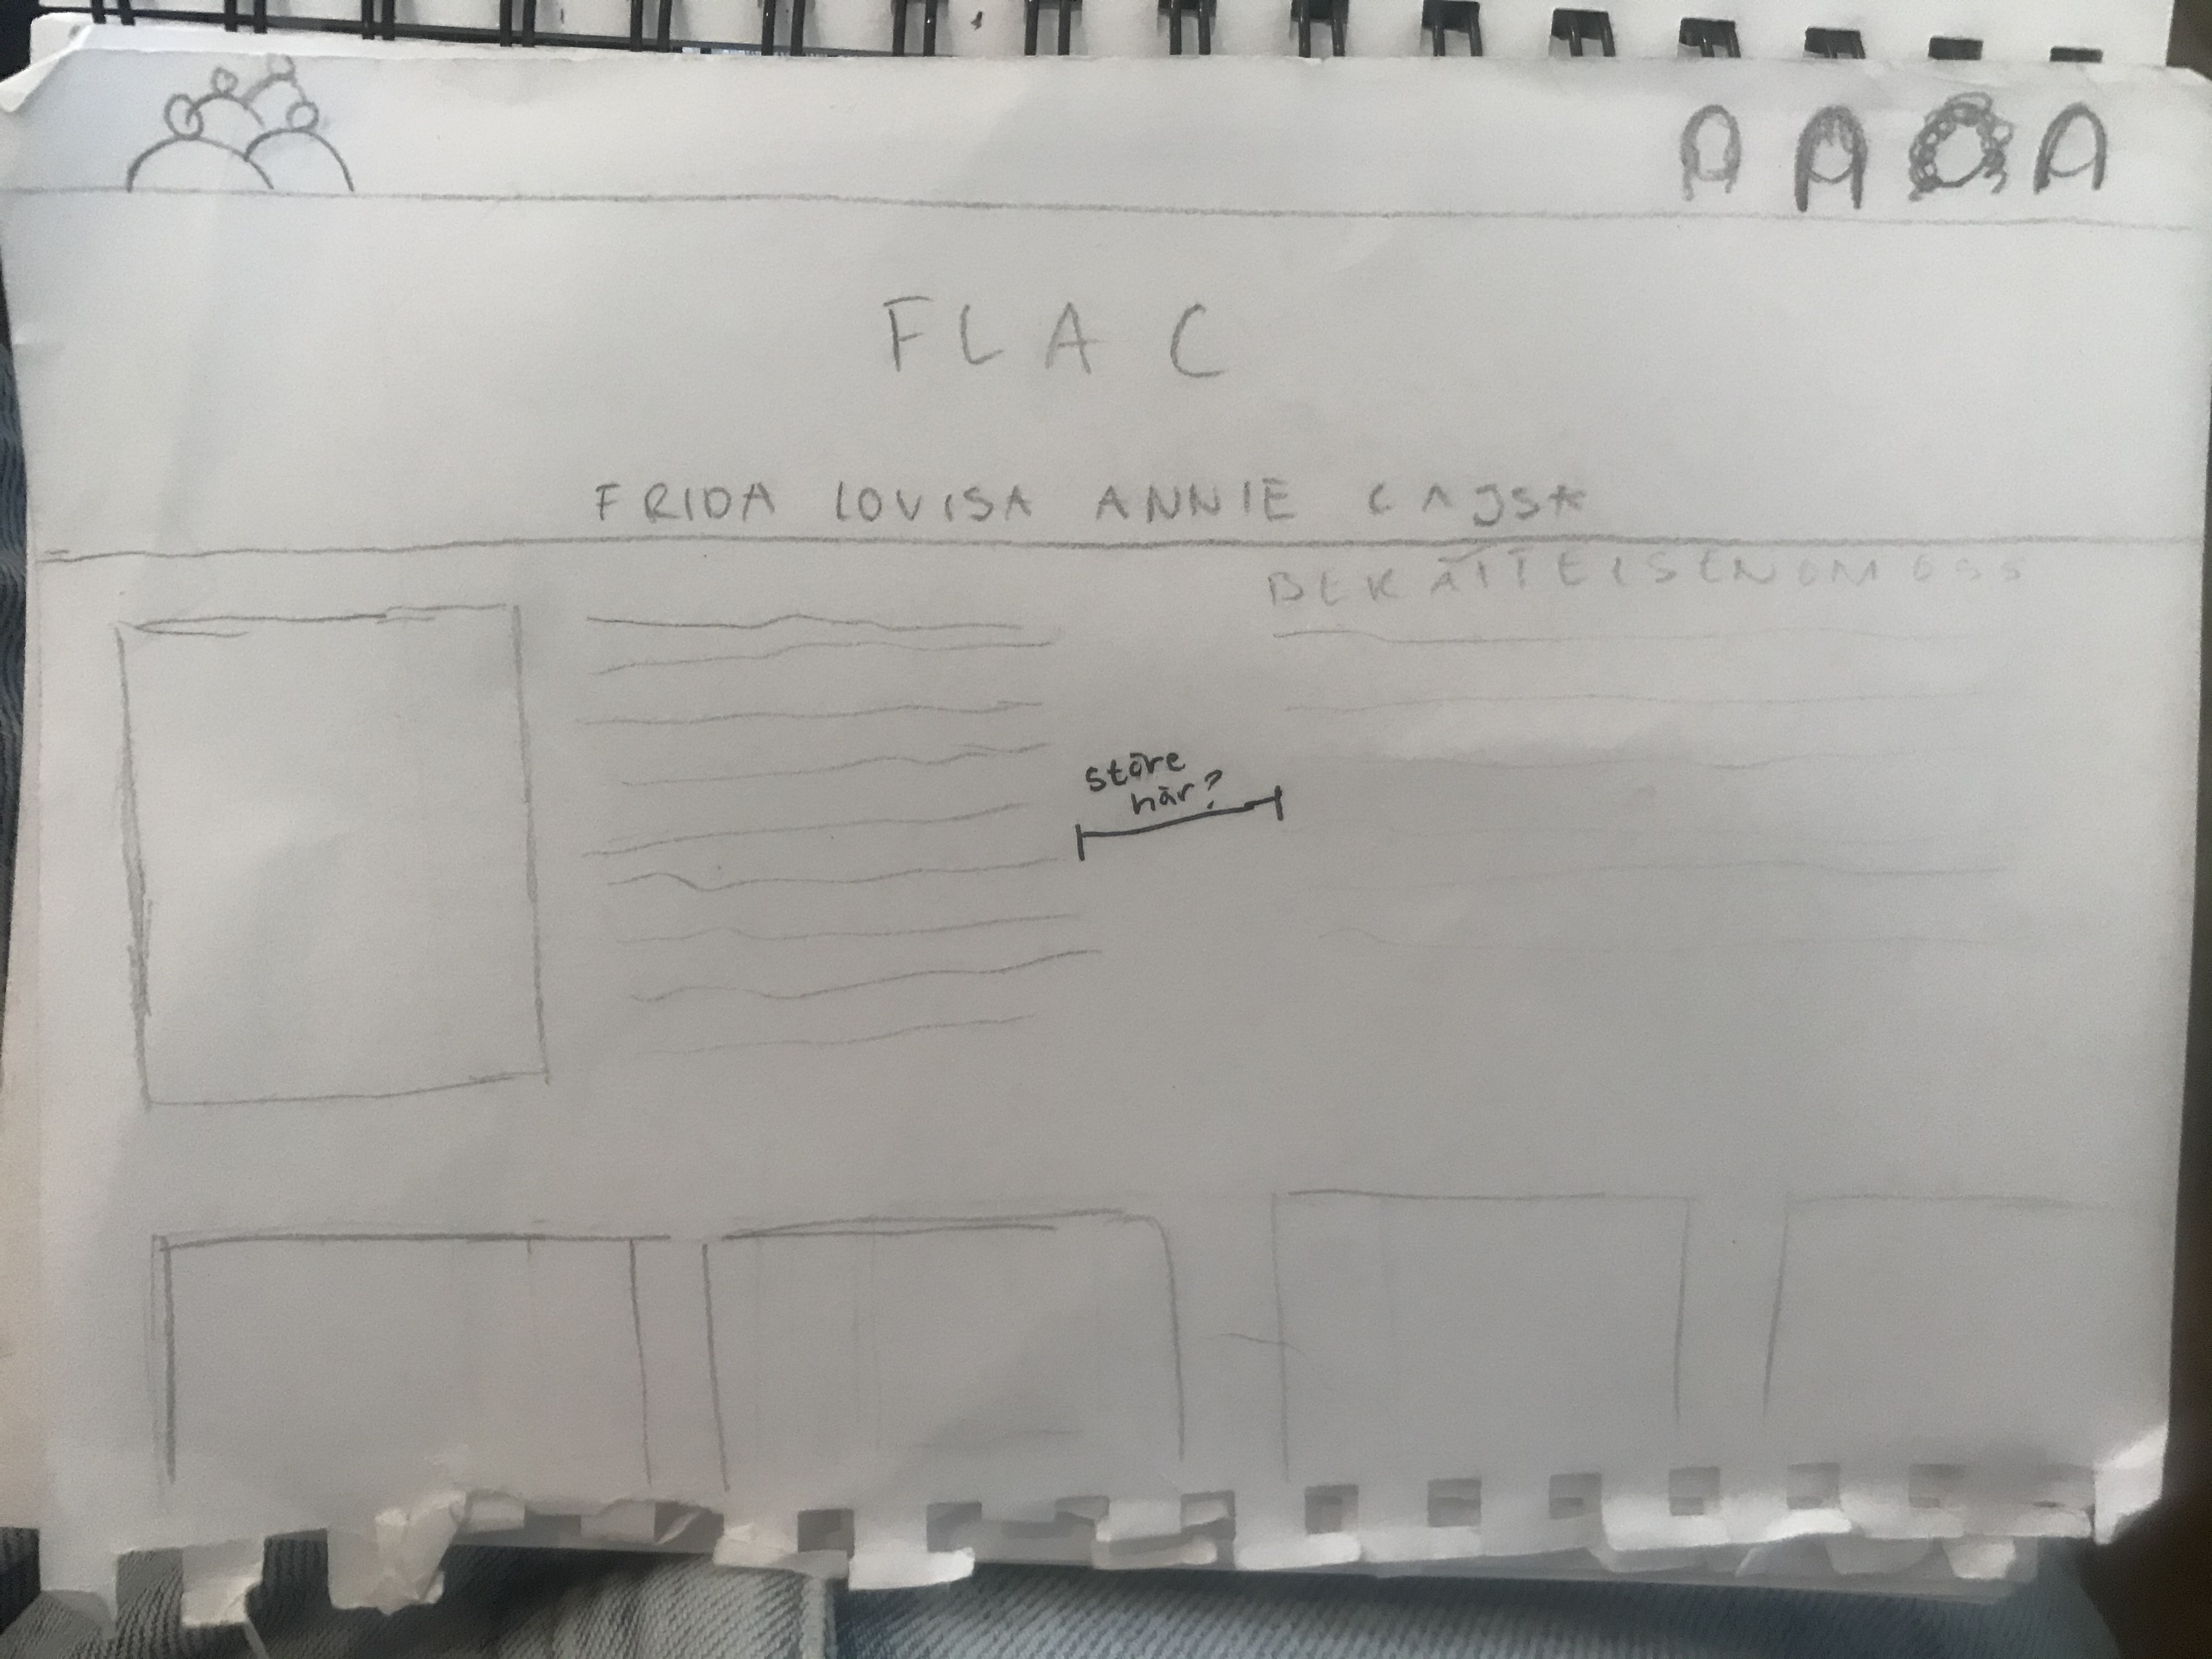 FLAC
FRIDA LOVISA ANNIE CAJSA
BERÄTTELSEN OM OSS
störe
här?